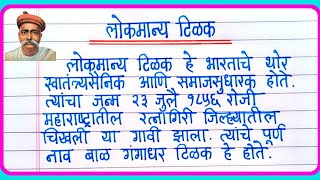 लोकमान्य टिळक
लोकमान्य टिळक हे भारताचे थोर
स्वातंत्र्यसैनिक आणि समाजसुधारक होते.
त्यांचा जन्म २३ जुलै १८५६ रोजी
महाराष्ट्रातील रत्नागिरी जिल्ह्यातील
चिखली या गावी झाला. त्यांचे पूर्ण
नाव बाळ गंगाधर टिळक हे होते.